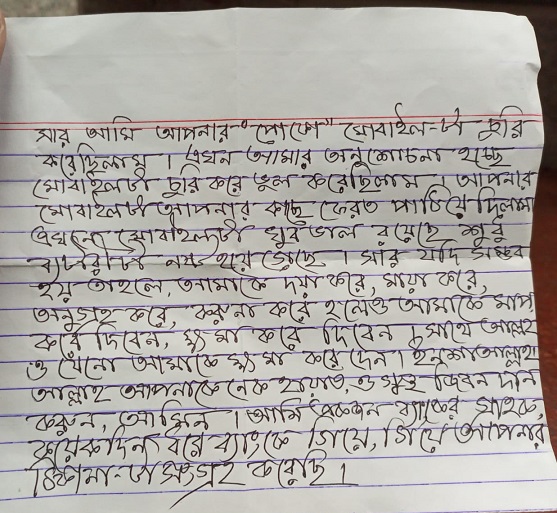 স্যার আমি আপনার "পোকো" মোবাইল-টা চুরি
করেছিলাম। এখন আমার অনুশোচনা হচ্ছে
মোবাইলটা চুরি করে ভুল করেছিলাম। আপনার
মোবাইলটা আপনার কাছে ফেরত পাঠিয়ে দিলাম
এখনো মোবাইলটা খুব ভাল রয়েছে শুধু
ব্যাটারীটা নষ্ট হয়ে গেছে। স্যার যদি সম্ভব
হয় তাহলে, আমাকে দয়া করে, মায়া করে,
অনুগ্রহ করে, করুনা করে হলেও আমাকে মাপ
করে দিবেন, ক্ষমা করে দিবেন। সাথে আল্লাহ
ও যেনো আমাকে ক্ষমা করে দেন। ইনশাআল্লাহ
আল্লাহ আপনাকে নেক হায়াত, ও সুস্থ জিবন দান
করুন, আমিন। আমি একজন ব্যাংকের গ্রাহক,
কয়েকদিন ধরে ব্যাংকে গিয়ে, গিয়ে আপনার
ঠিকানা-টা সংগ্রহ করেছি।